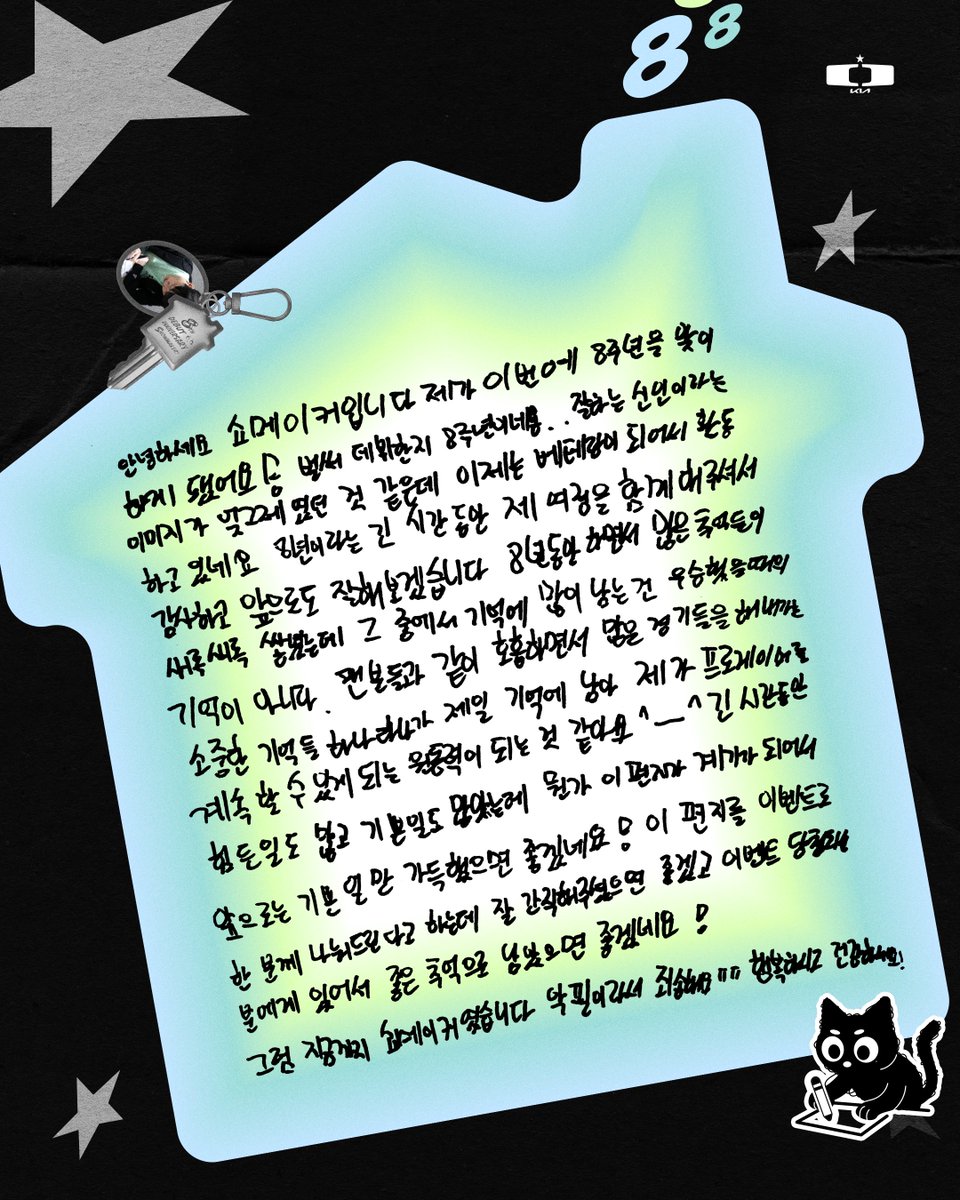 8 8
KIA
8
DEBUT
ANNIVERSARY
SHOWMAKER
안녕하세요 쇼메이커입니다 제가 이번에 8주년을 맞이
하게 됐어요 벌써 데뷔한지 8주년이네요.. 잘하는 신인이라는
이미지가 엊그제 였던 것 같은데 이제는 베테랑이 되어서 활동
하고 있네요 8년이라는 긴 시간동안 제 여정을 함께 해주셔서
감사하고 앞으로도 잘해보겠습니다 8년동안 하면서 많은 추억들이
새록새록 쌓였는데 그 중에서 기억에 많이 남는건 우승했을때의
기억이 아니다. 팬분들과 같이 호흡하면서 많은 경기들을 해내가는
소중한 기억들 하나하나가 제일 기억에 남아 제가 프로게이머로
계속 할 수 있게 되는 원동력이 되는 것 같아요 ^ㅡ^ 긴 시간동안
힘든일도 많고 기쁜일도 많았는데 뭔가 이 편지가 계기가 되어서
앞으로는 기쁜 일만 가득했으면 좋겠네요! 이 편지를 이벤트로
한 분께 나눠드린다고 하는데 잘 간직해주셨으면 좋겠고 이벤트 당첨돼
분에게 있어서 좋은 추억으로 남았으면 좋겠네요!
그럼 지금까지 쇼메이커였습니다 악필이라서 죄송해요ㅠㅠ 행복하시고 건강하세요!